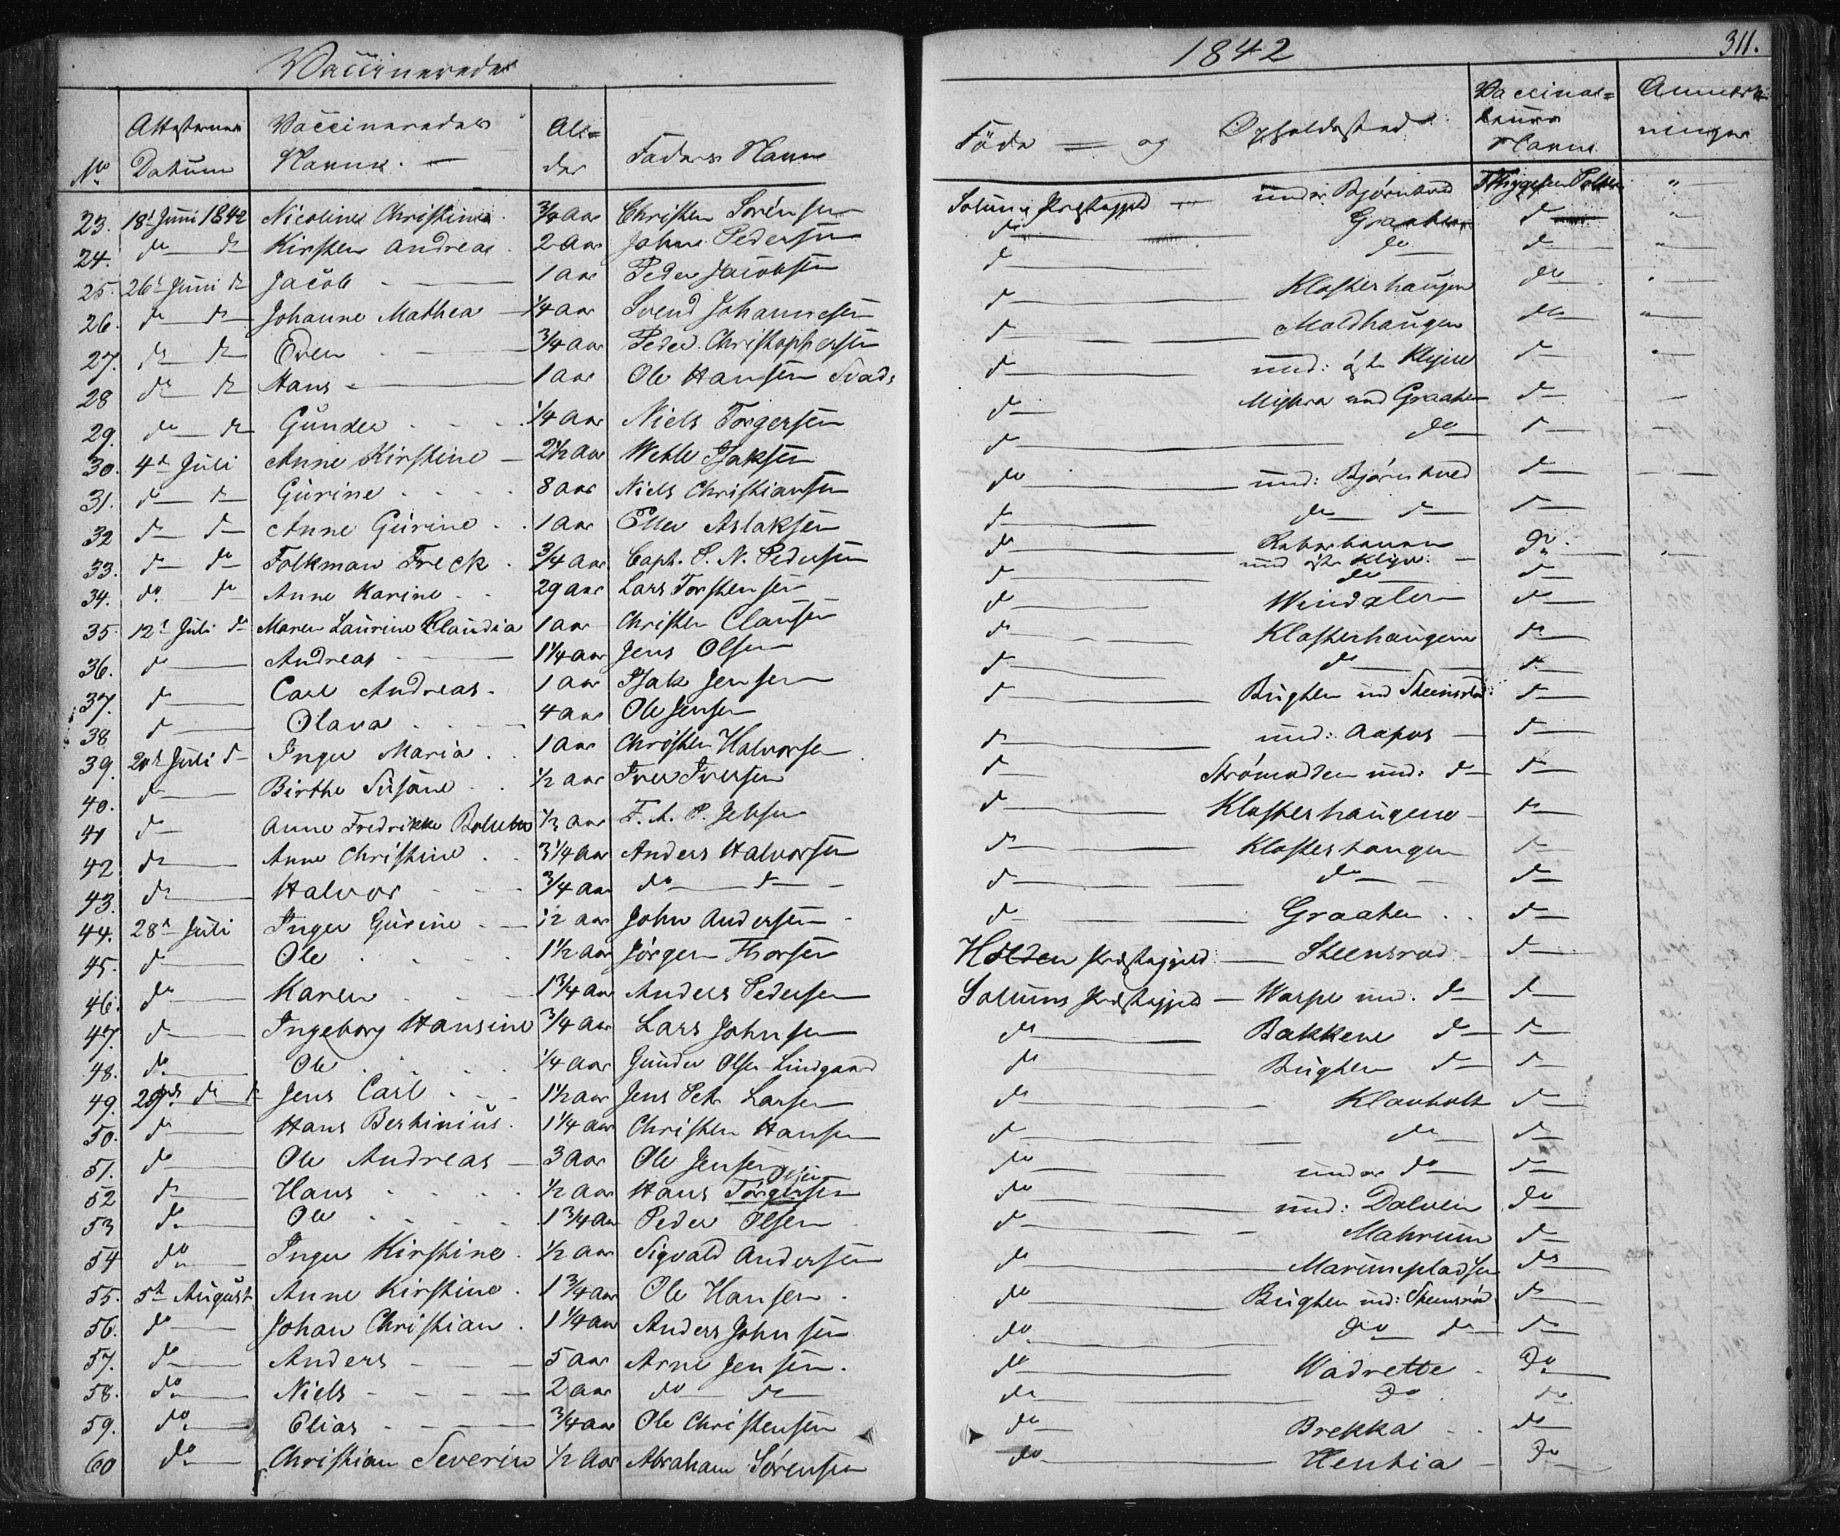 Vaccinerede
1842
311.
No
Attesternes Datum
Vaccineredes Navne.
Al= der
Faders Navn
Føde = og Opholdssted
Vaccina= teurs Navne
Anmærk= ninger
23. 18d Juni 1842 Nicoline Christine 3/4 Aar Christen Sørensen Solums Præstegjeld — under Bjørntved
24. do do Kirsten Andrea 2 Aar John Pedersen do Graaten do
25. 26d Juni do Jacob 1 Aar Peder Jacobsen do do do
26. do do Johanne Mathea 1/4 Aar Svend Johannesen do Klosterhaugen do
27. do do Even 3/4 Aar Peder Christophersen do Moldhaugen do
28 do do Hans 1 Aar Ole Hansen do und: øste Klyve do
29. do do Gunder 1/4 Aar Niels Torgersen do Myhra und Graaten do
30. 4d Juli Anne Kirstine 2 1/2 Aar Wetle Isaksen do do do
31. do do Gurine 8 Aar Niels Christiansen do und: Bjørntved do
32 do do Anne Gurine 1 Aar Ellev Aslaksen do do do do
33. do do Folkman Freck 3/4 Aar Capt. P. N. Pedersen do do
34. do do Anne Karine 29 Aar Lars Torstensen do und øste Klyve do do
35. 12d Juli do Maren Laurine Claudia 1 Aar Christen Clausen do do
36. do Andreas 1 1/4 Aar Jens Olsen do Klosterhaugene do
37. do Carl Andreas 1 Aar Isak Jensen do do do
38 do Olava 4 Aar Ole Jensen do Brighen und Steensrød: do
39. 20d Juli do Inger Maria 1 Aar Christen Halvorsen do und: Aapos do
40. do Birthe Susane 1/2 Aar Iver Iversen do und: do do
41 do Anne Fredrikke 1/3 Aar F. A. P. Jebsen do Klosterhaugene do
42 do Anne Christine 3 1/4 Aar Anders Halvorsen do Klosterhaugen do
43. do Halvor 3/4 Aar do do do do do
44. 28d Juli Inger Gurine 1/2 Aar John Andersen do Graaten do
45. do Ole 1 1/2 Aar Jörgen Thorsen Holden Præstegjeld — Steensrød do
46. do Karen 1 3/4 Aar Anders Pedersen Solums Præstegjeld — Warpe und. do do
47. do Ingeborg Hansine 3/4 Aar Lars Johnsen do Bakkene do do
48. do Ole 1/4 Aar Gunder Olsen Lindgaard do Brighen do do
49. 29d do do Jens Carl 1 1/2 Aar Jens Petr Larsen do Klovholt do
50. do Hans Berthinius 1 1/4 Aar Christen Hansen do do do
51. do Ole Andreas 3 Aar Ole Jensen do under do do
52 do Hans 1/2 Aar Hans Torgersen do und: Dalven do
53 do Ole 1 3/4 Aar Peder Olsen do Mahrum do
54 do Inger Kirstine 1/2 Aar Sigvald Andersen do Marumpladsen do
55. 5d August Anne Kirstine 1 3/4 Aar Ole Hansen do Brighen und: Steensrød do
56. do Johan Christian 1 1/4 Aar Anders Johnsen do do do do
57. do Anders 5 Aar Arne Jensen. do Wadrette do
58. do Niels 2 Aar do do do do do
59. do Elias 3/4 Aar Ole Christensen do Brekka do
60 do Christian Severin 1/2 Aar Abraham Sørensen do Hentia do